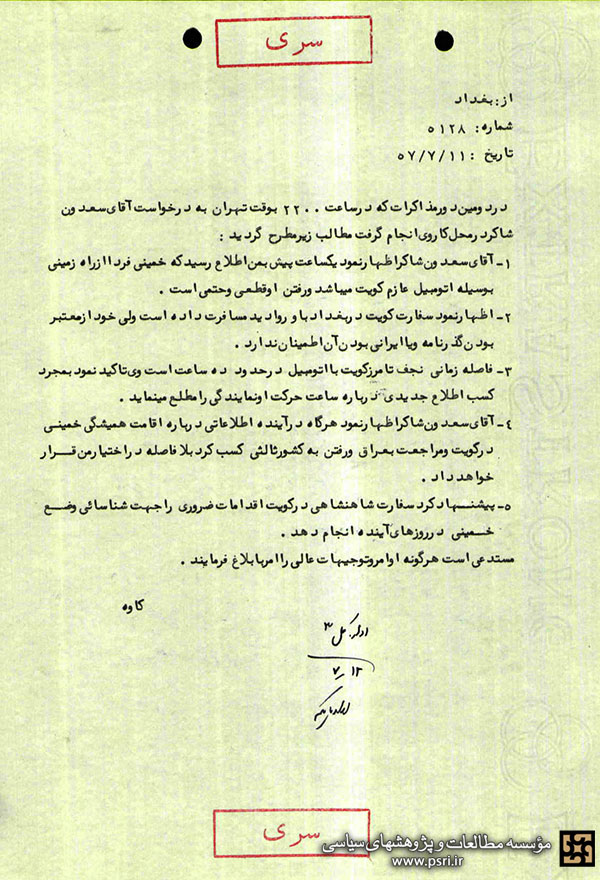 سری
از: بغداد
شماره: ۵۱۲۸
تاریخ: ۵۷/۷/۱۱
در دومین دور مذاکرات که در ساعت ۲۲۰۰ بوقت تهران به درخواست آقای سعدون
شاکر در محل کار وی انجام گرفت مطالب زیر مطرح گردید :
۱ـ آقای سعدون شاکر اظهار نمود یکساعت پیش بمن اطلاع رسید که خمینی فردا از راه زمینی
بوسیله اتومبیل عازم کویت میباشد و رفتن او قطعی و حتمی است .
۲ـ اظهار نمود سفارت کویت در بغداد با و روادید مسافرت داده است ولی خود از معتبر
بودن گذرنامه و یا ایرانی بودن آن اطمینان ندارد .
۳ـ فاصله زمانی نجف تا مرز کویت با اتومبیل در حدود ده ساعت است وی تاکید نمود بمجرد
کسب اطلاع جدیدی درباره ساعت حرکت او نمایندگی را مطلع مینماید .
۴ـ آقای سعدون شاکر اظهار نمود هرگاه در آینده اطلاعاتی درباره اقامت همیشگی خمینی
در کویت و مراجعت بعراق و رفتن به کشور ثالثی کسب کرد بلافاصله در اختیار من قرار
خواهد داد .
۵ـ پیشنهاد کرد سفارت شاهنشاهی در کویت اقدامات ضروری را جهت شناسائی وضع
خمینی در روزهای آینده انجام دهد .
مستدعی است هرگونه اوامر و توجیهات عالی را امر بابلاغ فرمایند .
کاوه
اداره کل ۳
۷/۱۲
سری
مؤسسه مطالعات و پژوهشهای سیاسی
www.psri.ir